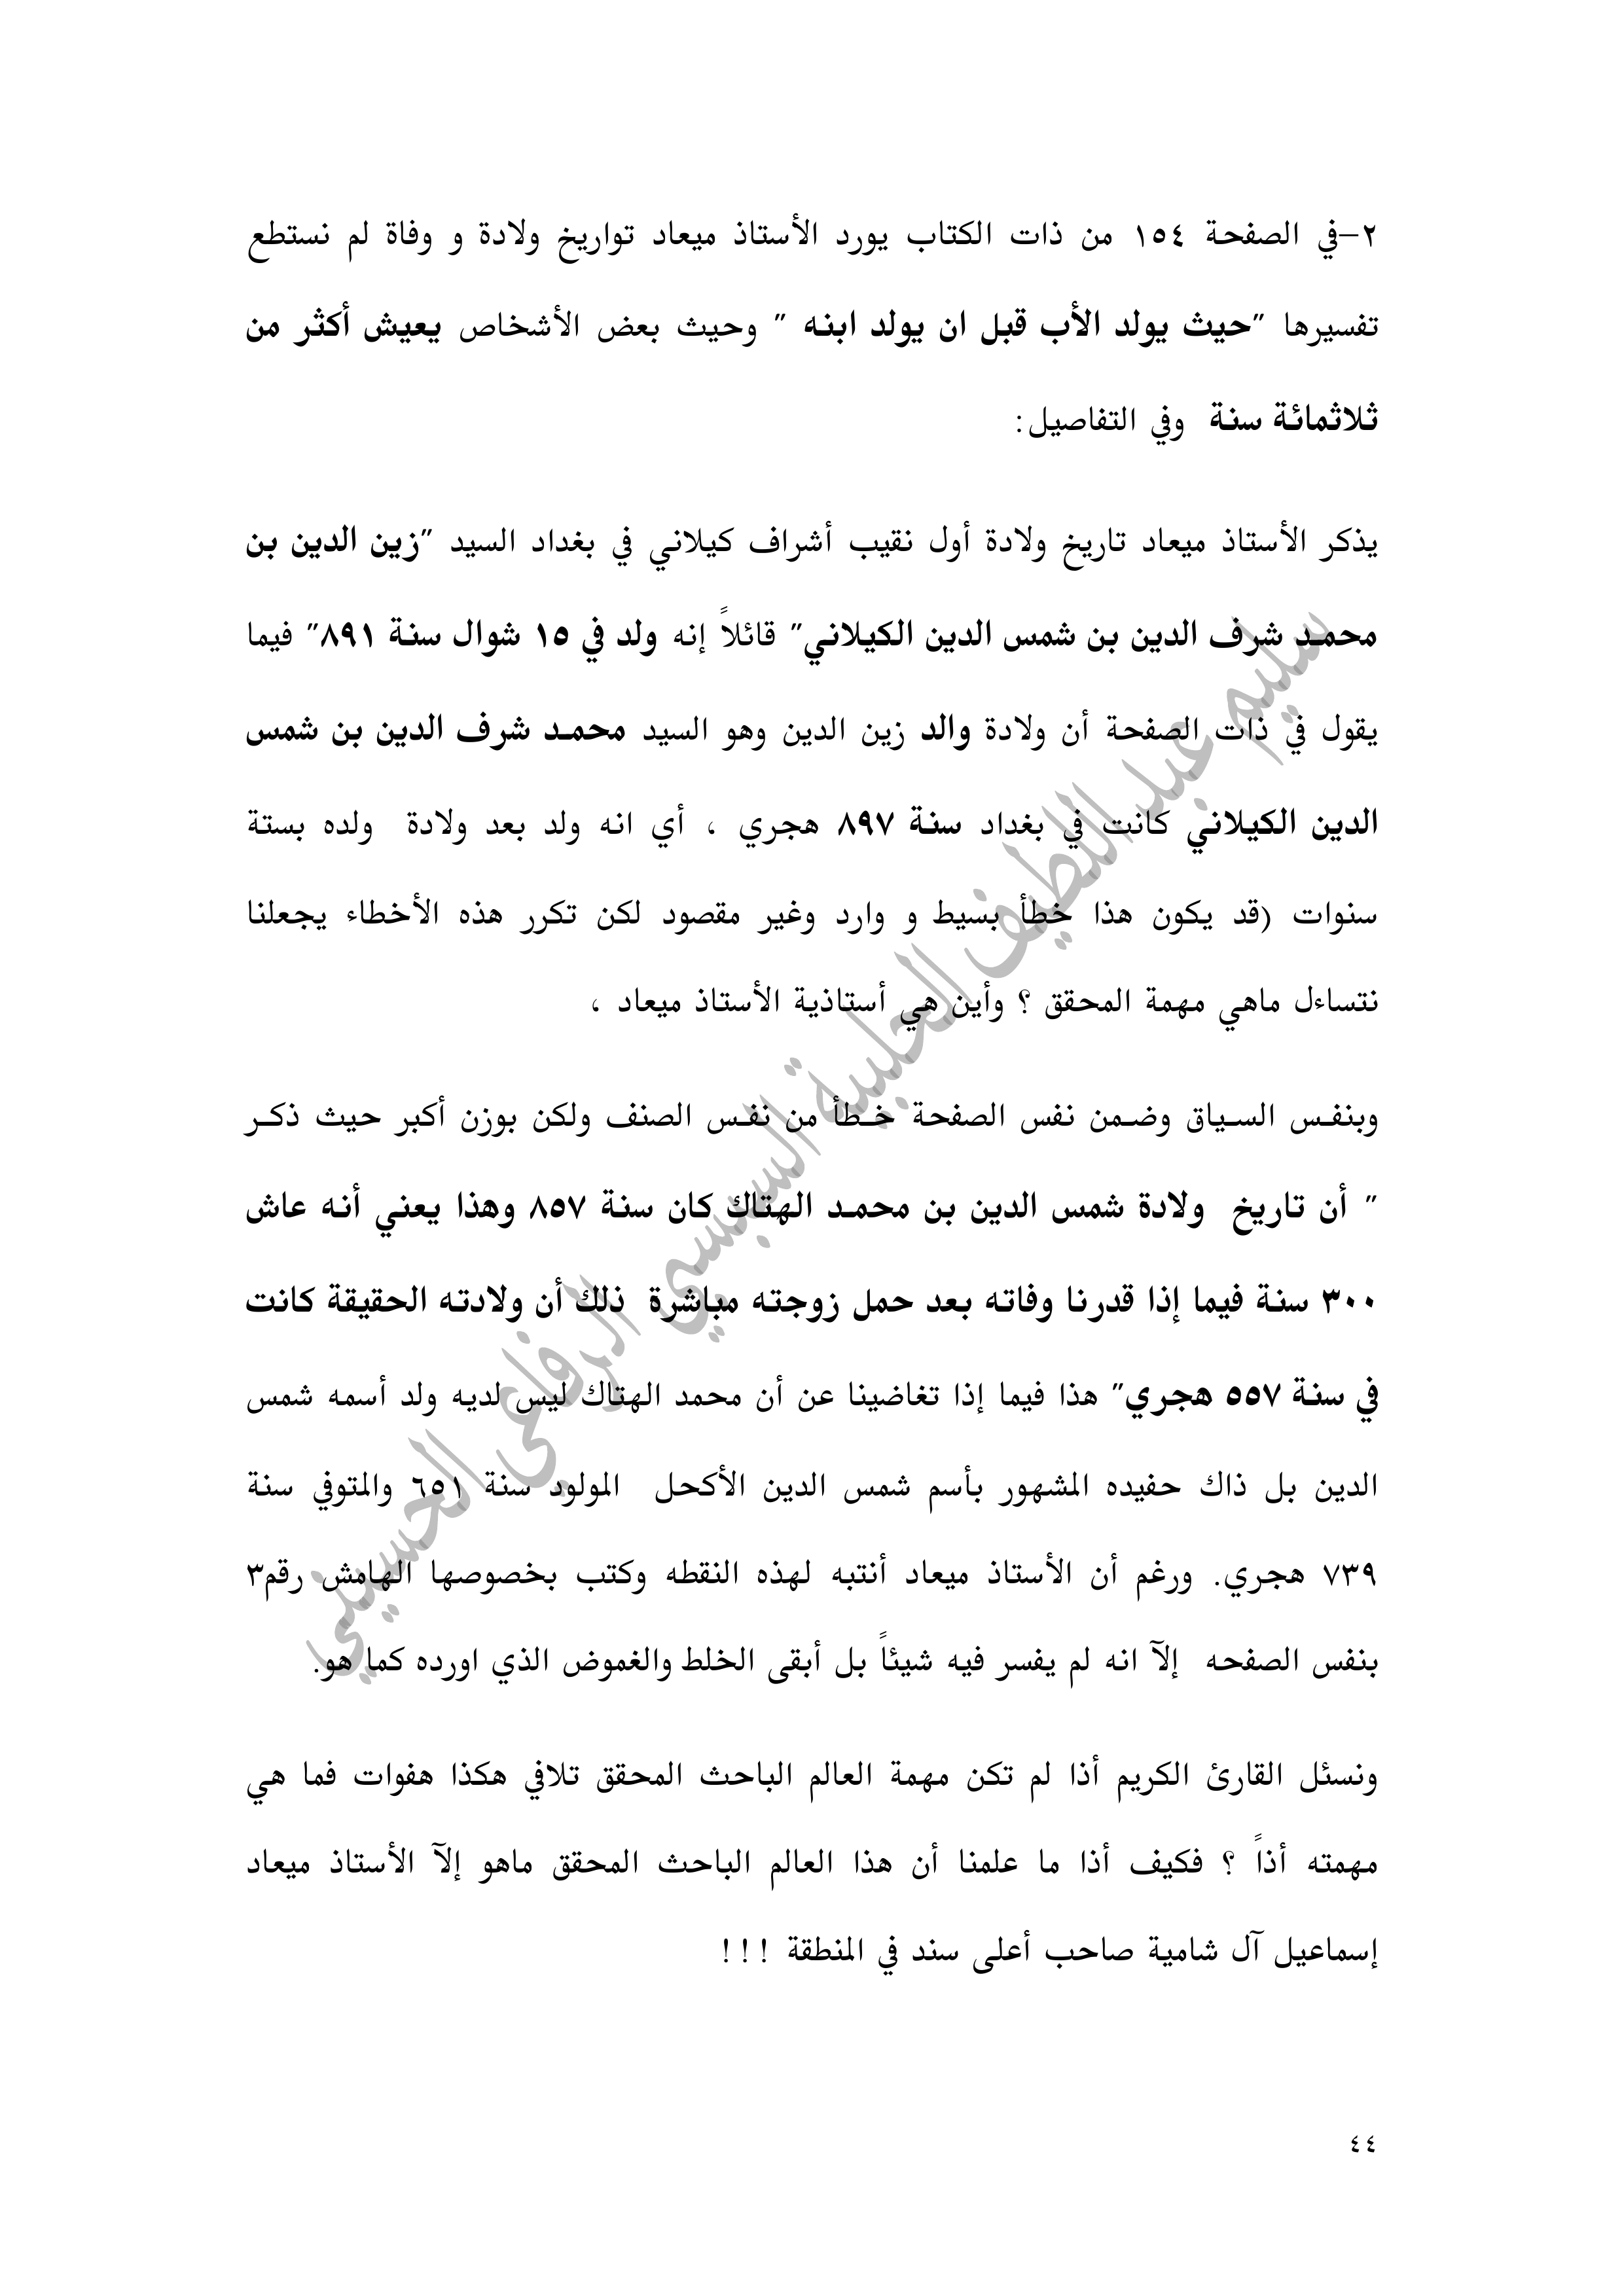 ٢-في الصفحة ١٥٤ من ذات الكتاب يورد الأستاذ ميعاد تواريخ ولادة و وفاة لم نستطع
تفسيرها "حيث يولد الأب قبل ان يولد ابنه " وحيث بعض الأشخاص يعيش أكثر من
ثلاثمائة سنة وفي التفاصيل:
يذكر الأستاذ ميعاد تاريخ ولادة أول نقيب أشراف كيلاني في بغداد السيد "زين الدين بن
محمـد شرف الدين بن شمس الدين الكيلاني" قائلاً إنه ولد في ١٥ شوال سنة ٨٩١" فيما
يقول في ذات الصفحة أن ولادة والد زين الدين وهو السيد محمـد شرف الدين بن شمس
الدين الكيلاني كانت في بغداد سنة ٨٩٧ هجري ، أي انه ولد بعد ولادة ولده بستة
سنوات (قد يكون هذا خطأ بسيط و وارد وغير مقصود لكن تكرر هذه الأخطاء يجعلنا
نتساءل ماهي مهمة المحقق ؟ وأين هي أستاذية الأستاذ ميعاد ،
وبنفـس السـياق وضـمن نفس الصفحة خـطأ من نفـس الصنف ولكن بوزن أكبر حيث ذكـر
" أن تاريخ ولادة شمس الدين بن محمـد الهتاك كان سنة ٨٥٧ وهذا يعني أنه عاش
٣٠٠ سنة فيما إذا قدرنا وفاته بعد حمل زوجته مباشرة ذلك أن ولادته الحقيقة كانت
في سنة ٥٥٧ هجري" هذا فيما إذا تغاضينا عن أن محمد الهتاك ليس لديه ولد أسمه شمس
الدين بل ذاك حفيده المشهور بأسم شمس الدين الأكحل المولود سنة ٦٥١ والمتوفي سنة
٧٣٩ هجري. ورغم أن الأستاذ ميعاد أنتبه لهذه النقطه وكتب بخصوصها الهامش رقم٣
بنفس الصفحه إلآ انه لم يفسر فيه شيئاً بل أبقى الخلط والغموض الذي اورده كما هو.
ونسئل القارئ الكريم أذا لم تكن مهمة العالم الباحث المحقق تلافي هكذا هفوات فما هي
مهمته أذاً ؟ فكيف أذا ما علمنا أن هذا العالم الباحث المحقق ماهو إلآ الأستاذ ميعاد
إسماعيل آل شامية صاحب أعلى سند في المنطقة !!!
سليم عبد اللطيف الحلبية السبسبي الرفاعي الحسيني
٤٤